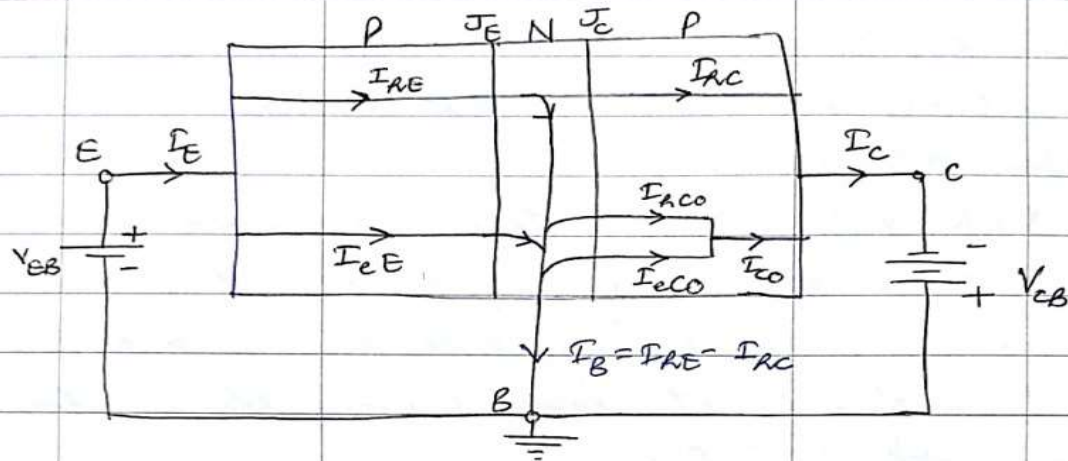 P J_E N J_C P
I_RE I_RC
E I_E I_C C
I_RCO
V_EB + - I_eE I_eCO I_CO - + V_CB
I_B = I_RE - I_RC
B